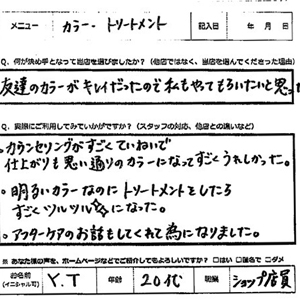 メニュー カラー・トリートメント 記入日 年 月 日
Q. 何が決め手となって当店を選びましたか？（他店ではなく、当店を選んでくださった理由）
友達のカラーがキレイだったので私もやってもらいたいと思っ
Q. 実際にご利用してみていかがですか？（スタッフの対応、他店との違いなど）
・カウンセリングがすごくていねいで
仕上がりも思い通りのカラーになってすごくうれしかった。
・明るいカラーなのにトリートメントをしたら
すごくツルツルになった。
・アフターケアのお話もしてくれて為になりました。
※ あなた様の声を、ホームページなどでご紹介してもよろしいですか？ □はい □匿名で □ダメ
お名前 (イニシャル可) Y.T 年齢 20代 職業 ショップ店員